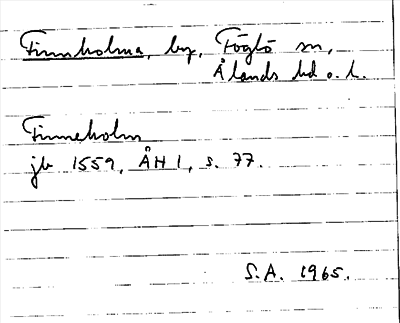 Finnholma, by, Föglö sn,
Ålands hd o. l.
Finneholm
jb 1559, ÅH 1, s. 77.
S.A. 1965.